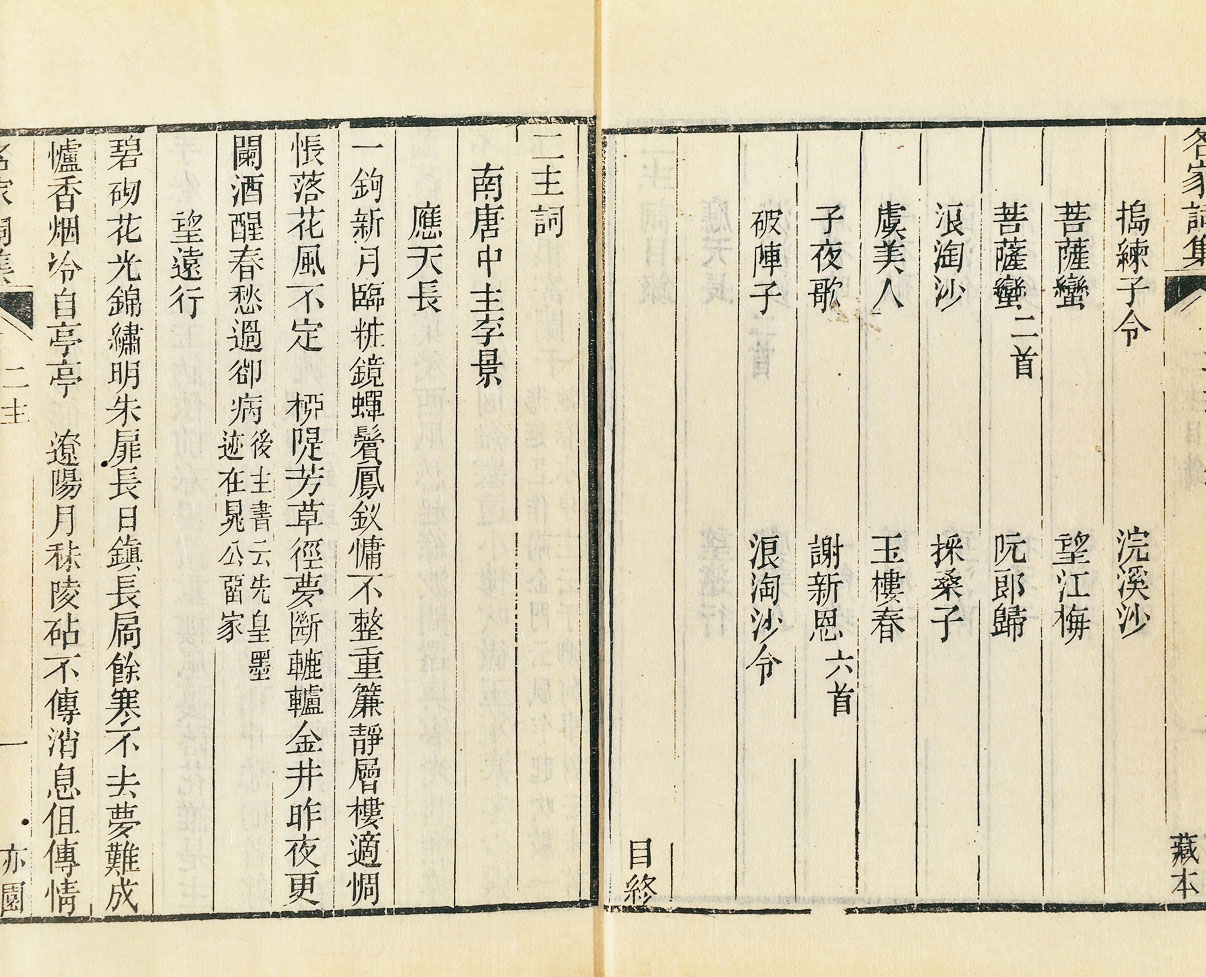 名家詞集
藏本
搗練子令 浣溪沙
菩薩蠻 望江梅
菩薩蠻二首 阮郎歸
浪淘沙 採桑子
虞美人 玉樓春
子夜歌 謝新恩六首
破陣子 浪淘沙令
目終
二主詞
南唐中主李景
應天長
一鉤新月臨粧鏡蟬鬢鳳釵慵不整重簾靜層樓適惆
悵落花風不定 栁隄芳草徑夢斷轆轤金井昨夜更
闌酒醒春愁過卻病
後主書云先皇墨
迹在晁公留家
望遠行
碧砌花光錦繡明朱扉長日鎮長扃餘寒不去夢難成
爐香烟冷自亭亭 遼陽月秣陵砧不傳消息但傳情
名家詞集
二主
一
亦園